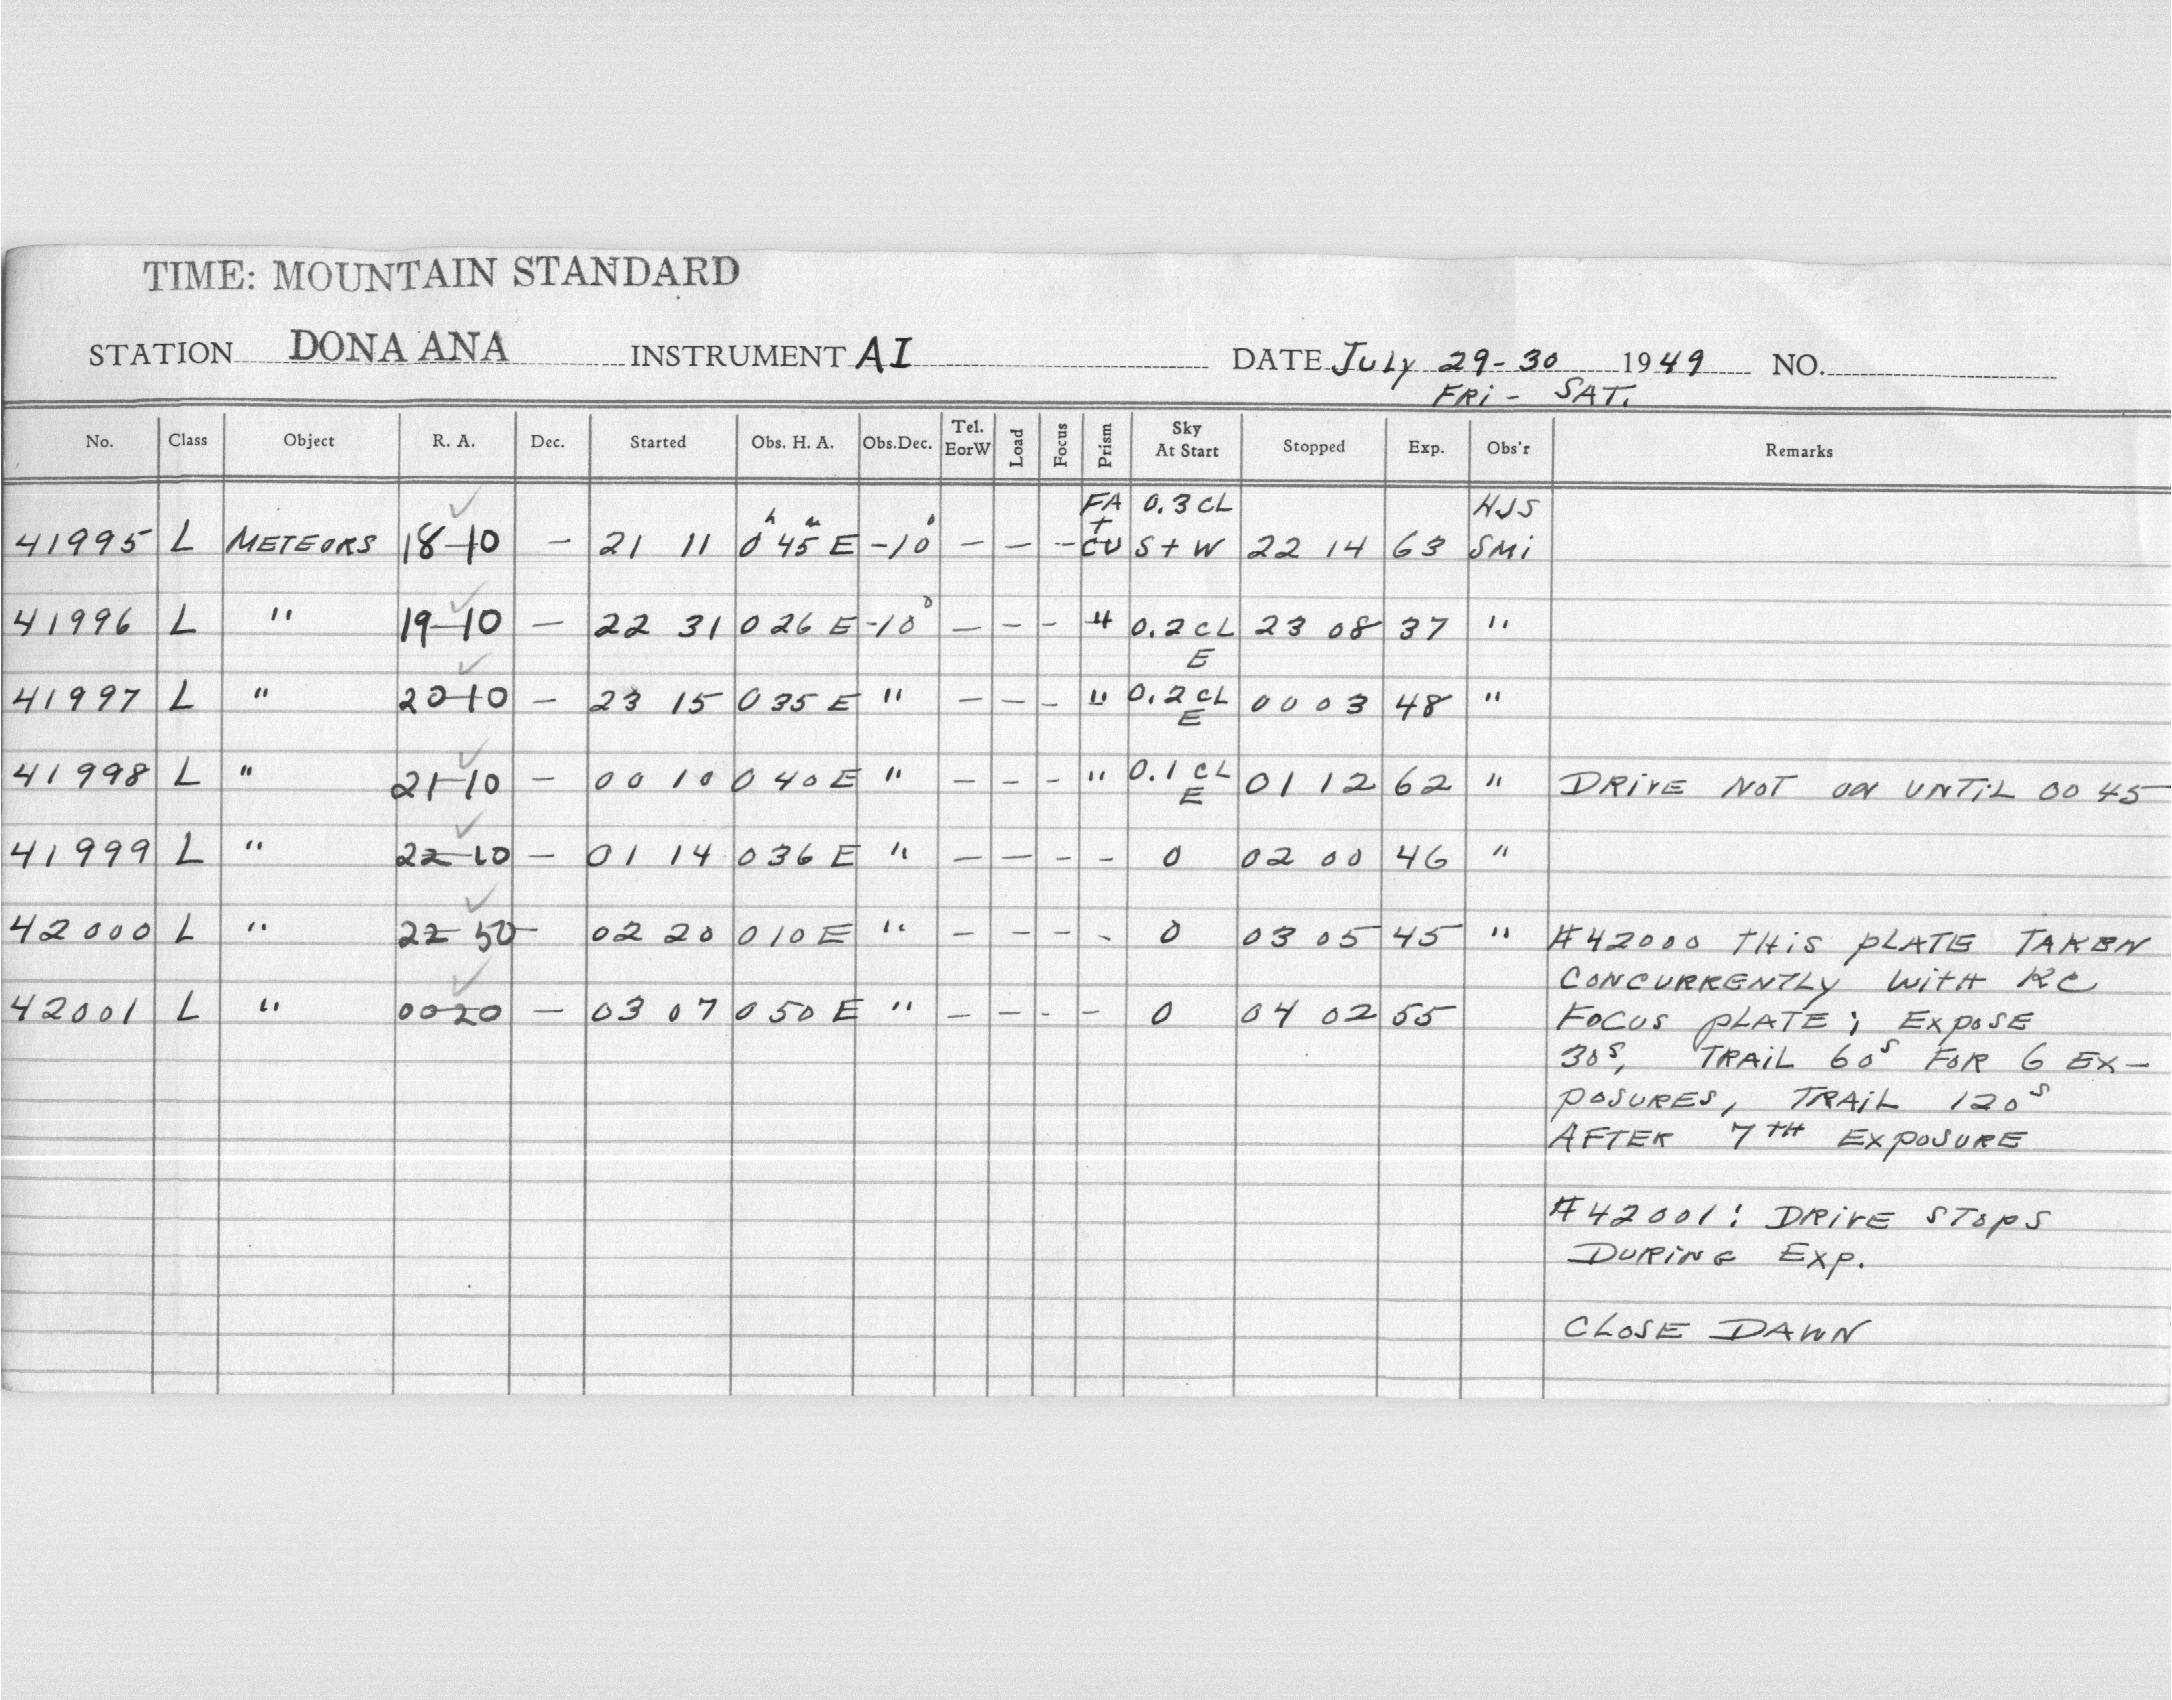 TIME: MOUNTAIN STANDARD
STATION DONA ANA INSTRUMENT AI DATE July 29-30 1949 NO.
FRi - SAT.
No. Class Object R. A. Dec. Started Obs. H. A. Obs.Dec. Tel. EorW Load Focus Prism Sky At Start Stopped Exp. Obs'r Remarks
41995 L METEORS 18-10 — 21 11 0h 45m E -10° — — — FA + CU 0.3 CL S + W 22 14 63 HJS SMi
41996 L " 19-10 — 22 31 0 26 E -10° — — — " 0.2 CL E 23 08 37 "
41997 L " 20-10 — 23 15 0 35 E " — — — " 0.2 CL E 00 03 48 "
41998 L " 21-10 — 00 10 0 40 E " — — — " 0.1 CL E 01 12 62 " DRiVE NOT ON UNTiL 00 45
41999 L " 22-10 — 01 14 0 36 E " — — — — 0 02 00 46 "
42000 L " 22-50 — 02 20 0 10 E " — — — - 0 03 05 45 " #42000 THiS PLATE TAKEN
CONCURRENTLY WiTH KC
42001 L " 00-20 — 03 07 0 50 E " — — - — 0 04 02 55 FOCUS PLATE; EXPOSE
30s, TRAiL 60s FOR 6 EX-
POSURES, TRAiL 120s
AFTER 7TH EXPOSURE
#42001: DRiVE STOPS
DURiNG EXP.
CLOSE DAWN